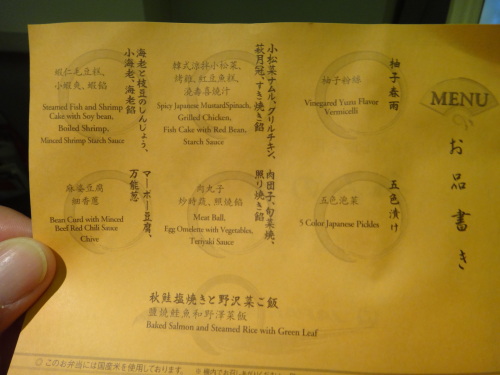 MENU
お品書き
柚子春雨
柚子粉絲
Vinegared Yuzu Flavor
Vermicelli
小松菜ナムル、グリルチキン、
萩月冠、すき焼き餡
韓式涼拌小松菜、
烤雞、紅豆魚糕、
澆壽喜燒汁
Spicy Japanese MustardSpinach,
Grilled Chicken,
Fish Cake with Red Bean,
Starch Sauce
海老と枝豆のしんじょう、
小海老、海老餡
蝦仁毛豆糕、
小蝦肉、蝦餡
Steamed Fish and Shrimp
Cake with Soy bean,
Boiled Shrimp,
Minced Shrimp Starch Sauce
五色漬け
五色泡菜
5 Color Japanese Pickles
肉団子、旬菜焼、
照り焼き餡
肉丸子
炒時蔬、照燒餡
Meat Ball,
Egg Omelette with Vegetables,
Teriyaki Sauce
マーボー豆腐、
万能葱
麻婆豆腐
細香蔥
Bean Curd with Minced
Beef Red Chili Sauce
Chive
秋鮭塩焼きと野沢菜ご飯
鹽燒鮭魚和野澤菜飯
Baked Salmon and Steamed Rice with Green Leaf
◎このお弁当には国産米を使用しております。